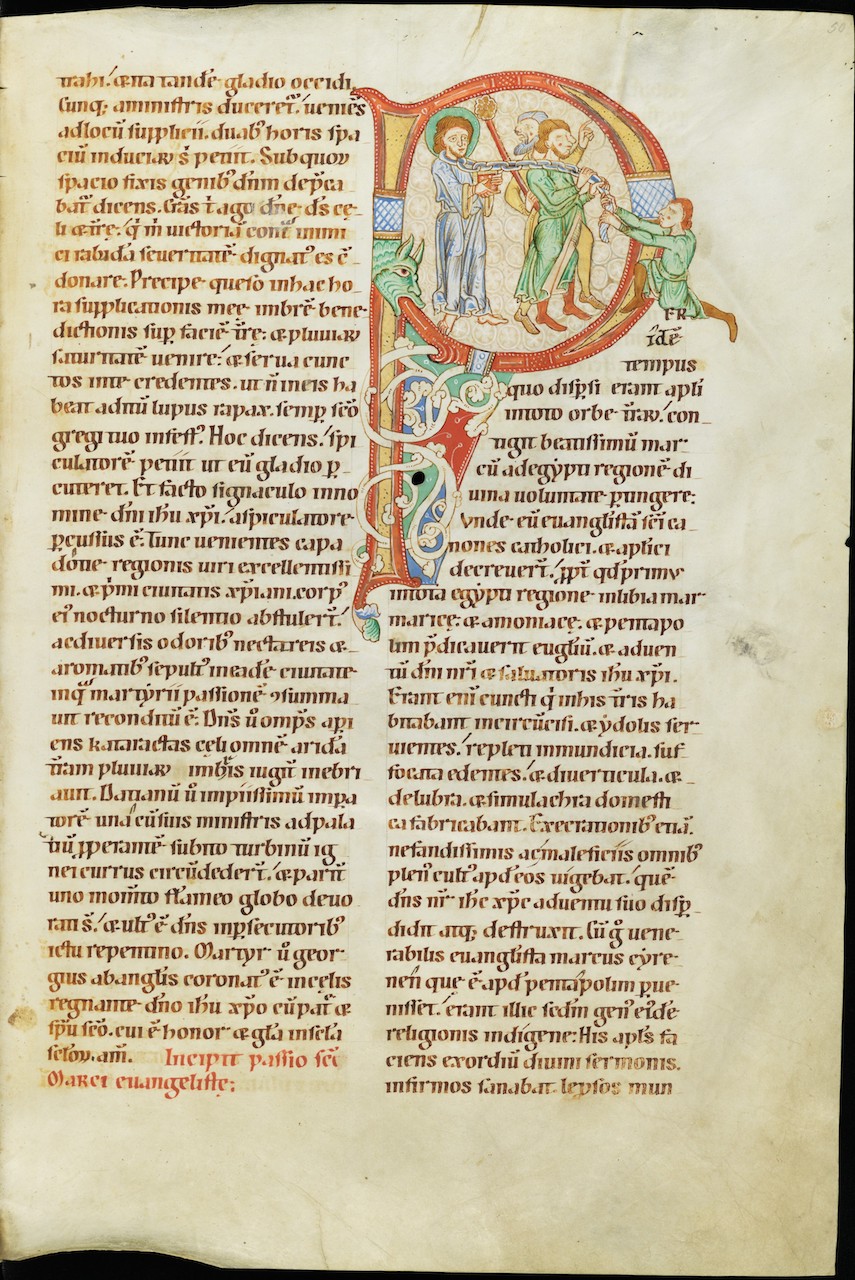 trahi. & ita tandē gladio occidi.
Cunq; a ministris duceret̄. ueniēs
ad locū supplicii. duab; horis spa
ciū induciaꝝ s̄ petiit. Sub quoꝝ
spacio fixis genib; dn̄m dep̄ca
bat̄ dicens. Grās t̄ ago dn̄e d̄s cę
li & tr̄e. q̄ m̄ uictoriā cont̄ inimi
ci rabida seueritatē dignat᷒ es ē
donare. Precipe queso in hac ho
ra supplicationis meę imbrē bene
dictionis sup̄ faciē tr̄e. & pluuiaꝝ
saturitatē uenire. & serua cunc
tos in te credentes. ut n̄ in eis ha
beat aditū lupus rapax. semp̄ sc̄o
gregi tuo infest᷒. Hoc dicens. spi
culatorē petiit ut eū gladio ꝑ
cuteret. Et facto signaculo in no
mine dn̄i ih̄u xp̄i. a spiculatore
ꝑcussus ē. Tunc uenientes capa
dotię regionis uiri excellentissi
mi. & p̄mi ciuitatis xp̄iani. corp᷒
ei᷒ nocturno silentio abstulert̄.
ac diuersis odorib; nectareis &
aromatib; sepult᷒ in eadē ciuitate
in q̄ martyrii passionē ꝯsumma
uit reconditū ē. Dn̄s ū omp̄s api
ens kataractas cęli omnē aridā
tr̄am pluuiaꝝ imb̄is iugit̄ inebri
auit. Datianū ū impiissimū impa
torē una cū suis ministris ad pala
tiū ꝓperantē subito turbinū ig
nei currus circūdedert̄. & parit̄
uno mom̄to flameo globo deuo
rati s̄. & ult᷒ ē dn̄s in ꝑsecutorib;
ictu repentino. Martyr ū geor
gius ab angl̄is coronat᷒ ē in cęlis
regnante dn̄o ih̄u xp̄o cū pat̄ &
sp̄u sc̄o. cui ē honor & gl̄a in secl̄a
sclōꝝ. am̄. Incipit passio sc̄i
Marci euangeliste;
P ER
idē
tempus
quo disp̄si erant apl̄i
in toto orbe tr̄aꝝ. con
tigit beatissimū mar
cū ad egypti regionē di
uina uoluntate ꝑtingere.
Vnde eū euanglīstā sc̄i ca
nones catholici. & aplīci
decreuert̄. ꝓpt̄ qd̄ primꝰ
in tota egypti regione in libia mar
maricę. & amoniace. & pentapo
lim p̄dicauerit eugliū. & aduen
tū dn̄i nr̄i & saluatoris ih̄u xp̄i.
Erant enī cuncti q̄ in his tr̄is ha
bitabant incircūcisi. & ydolis ser
uientes. repleti inmundicia. suf
focata edentes. & diuerticula. &
delubra. & simulachra domesti
ca fabricabant. Execrationib; etiā.
nefandissimis ac maleficiis omnib;
pleni᷒ cult᷒ apd̄ eos uigebat. quē
dn̄s nr̄ ih̄c xp̄c aduentu suo disꝑ
didit atq; destruxit. Cū g̊ uene
rabilis euanglīsta marcus cyre
nen que ē apd̄ pentapolim ꝑue
nisset. erant illic sedm̄ gen᷒ ei᷒dē
religionis indigene. His apl̄s fa
ciens exordiū diuini sermonis.
infirmos sanabat. leprosos mun